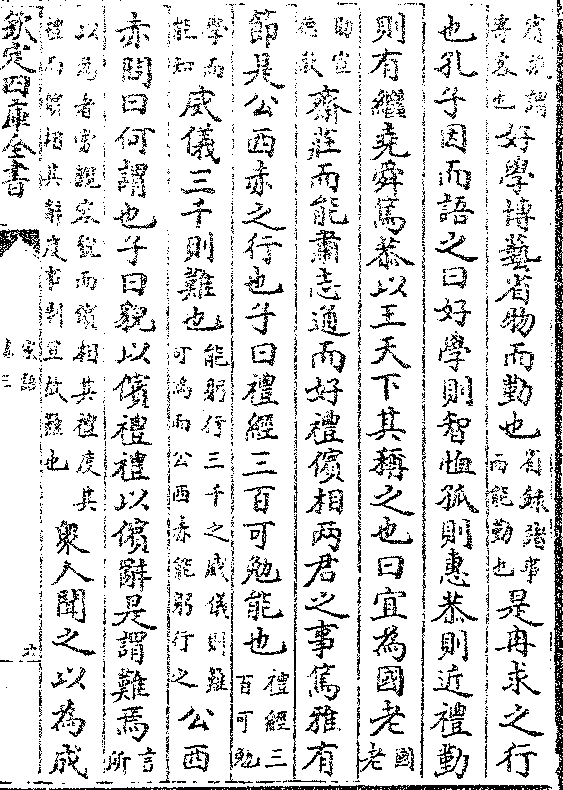 賓旅謂
寄客也
好學博藝省物而勤也
省録諸事
而能勤也
是冉求之行
也孔子因而語之曰好學則智恤孤則惠恭則近禮勤
則有繼堯舜篤恭以王天下其稱之也曰宜為國老
國
老
助宣
德教
齋莊而能肅志通而好禮儐相两君之事篤雅有
節是公西赤之行也子曰禮經三百可勉能也
禮經三
百可勉
學而
能知
威儀三千則難也
能躬行三千之威儀則難
可為而公西赤能躬行之
公西
赤問曰何謂也子曰貌以儐禮禮以儐辭是謂難焉
言
所
以為者當觀容貌而儐相其禮度其
禮而儐相其辭度事制宜故難也
衆人聞之以為成
欽定四庫全書
家語
卷三